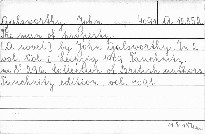 Galsworthy, John 4091 A 10.852
The man of property.
(A novel.) By John Galsworthy. In 2
vol. Vol 1. Leipzig 1909 Tauchnitz.
m 8° 296. Collection of British authors.
Tauchnitz edition vol. 4091.